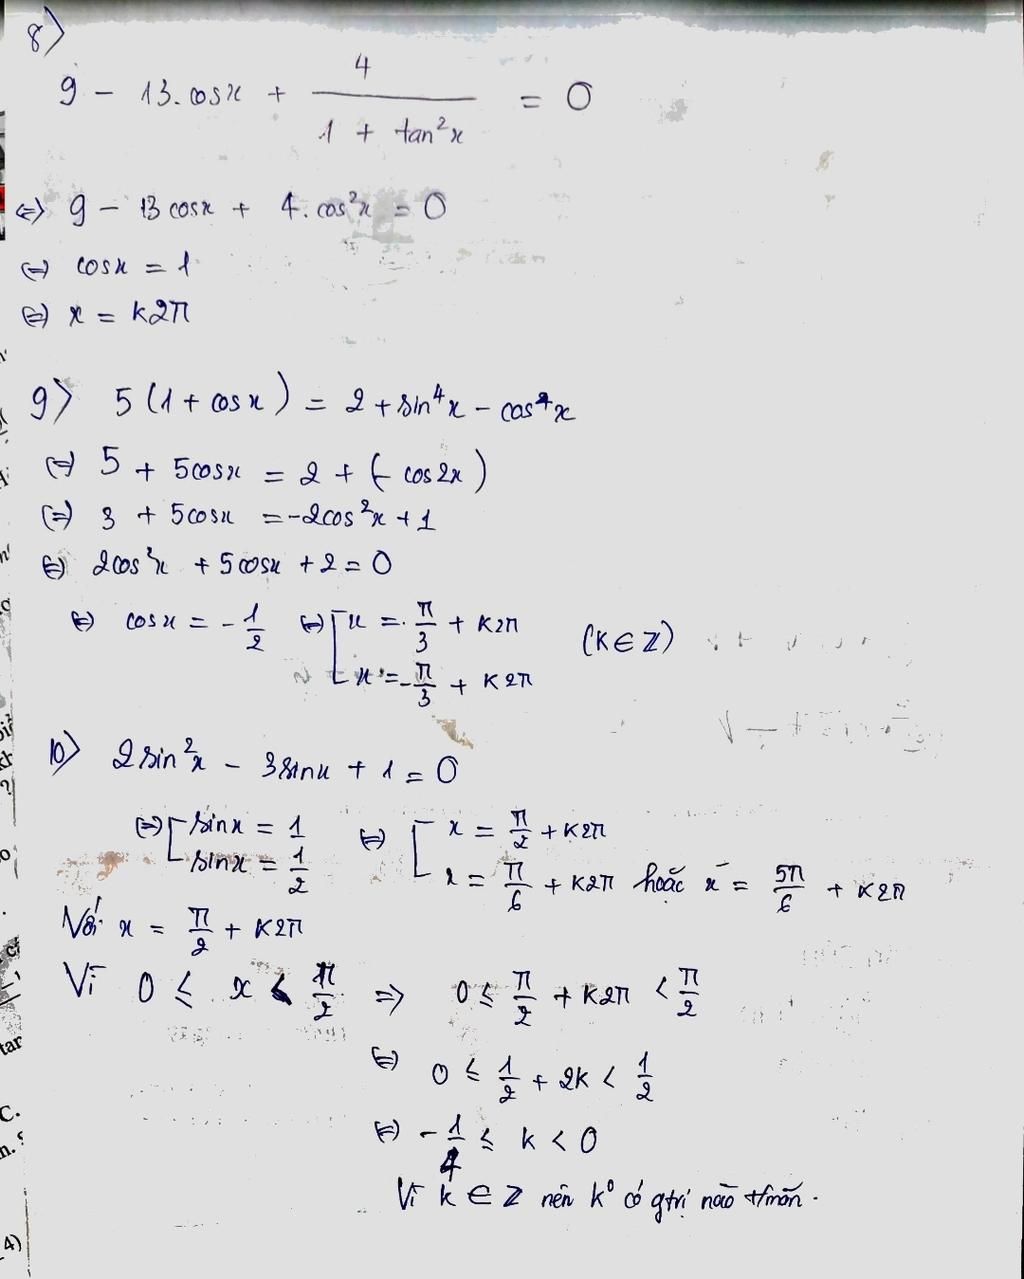 8)
9 - 13.cosx + 4/(1 + tan²x) = 0
(=) 9 - 13 cosx + 4.cos²x = 0
(=) cosx = 1
(=) x = k2π
9) 5(1 + cosx) = 2 + sin⁴x - cos⁴x
(=) 5 + 5cosx = 2 + (- cos2x)
(=) 3 + 5cosx = -2cos²x + 1
(=) 2cos²x + 5cosx + 2 = 0
(=) cosx = -1/2 (=) [ x = π/3 + k2π
x = -π/3 + k2π (k ∈ Z)
10) 2sin²x - 3sinx + 1 = 0
(=) [ sinx = 1 (=) [ x = π/2 + k2π
sinx = 1/2 x = π/6 + k2π hoặc x = 5π/6 + k2π
Với x = π/2 + k2π
Vì 0 ≤ x < π/2 => 0 ≤ π/2 + k2π < π/2
(=) 0 ≤ 1/2 + 2k < 1/2
(=) -1/4 ≤ k < 0
Vì k ∈ Z nên k° có gtrị nào t/mãn.
tar
C.
4)